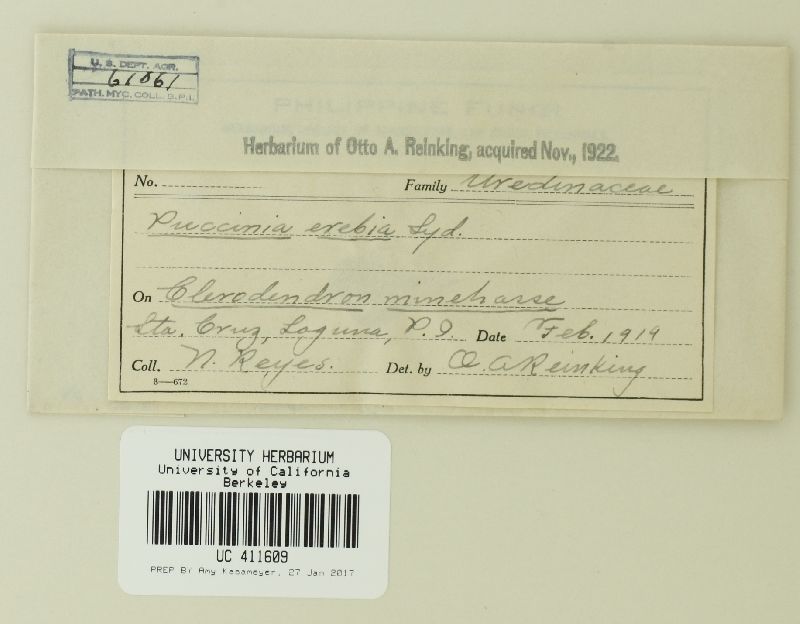 U. S. DEPT. AGR.
61861
PATH. MYC. COLL. B.P.I.
PHILIPPINE FUNGI
Herbarium of Otto A. Reinking, acquired Nov., 1922.
No. Family Uredinaceae
Puccinia erebia Syd.
On Clerodendron minehasse
Sta. Cruz, Laguna, P.I. Date Feb. 1919
Coll. N. Reyes. Det. by O. A Reinking
8—672
UNIVERSITY HERBARIUM
University of California
Berkeley
UC 411609
PREP BY Amy Kasameyer, 27 Jan 2017